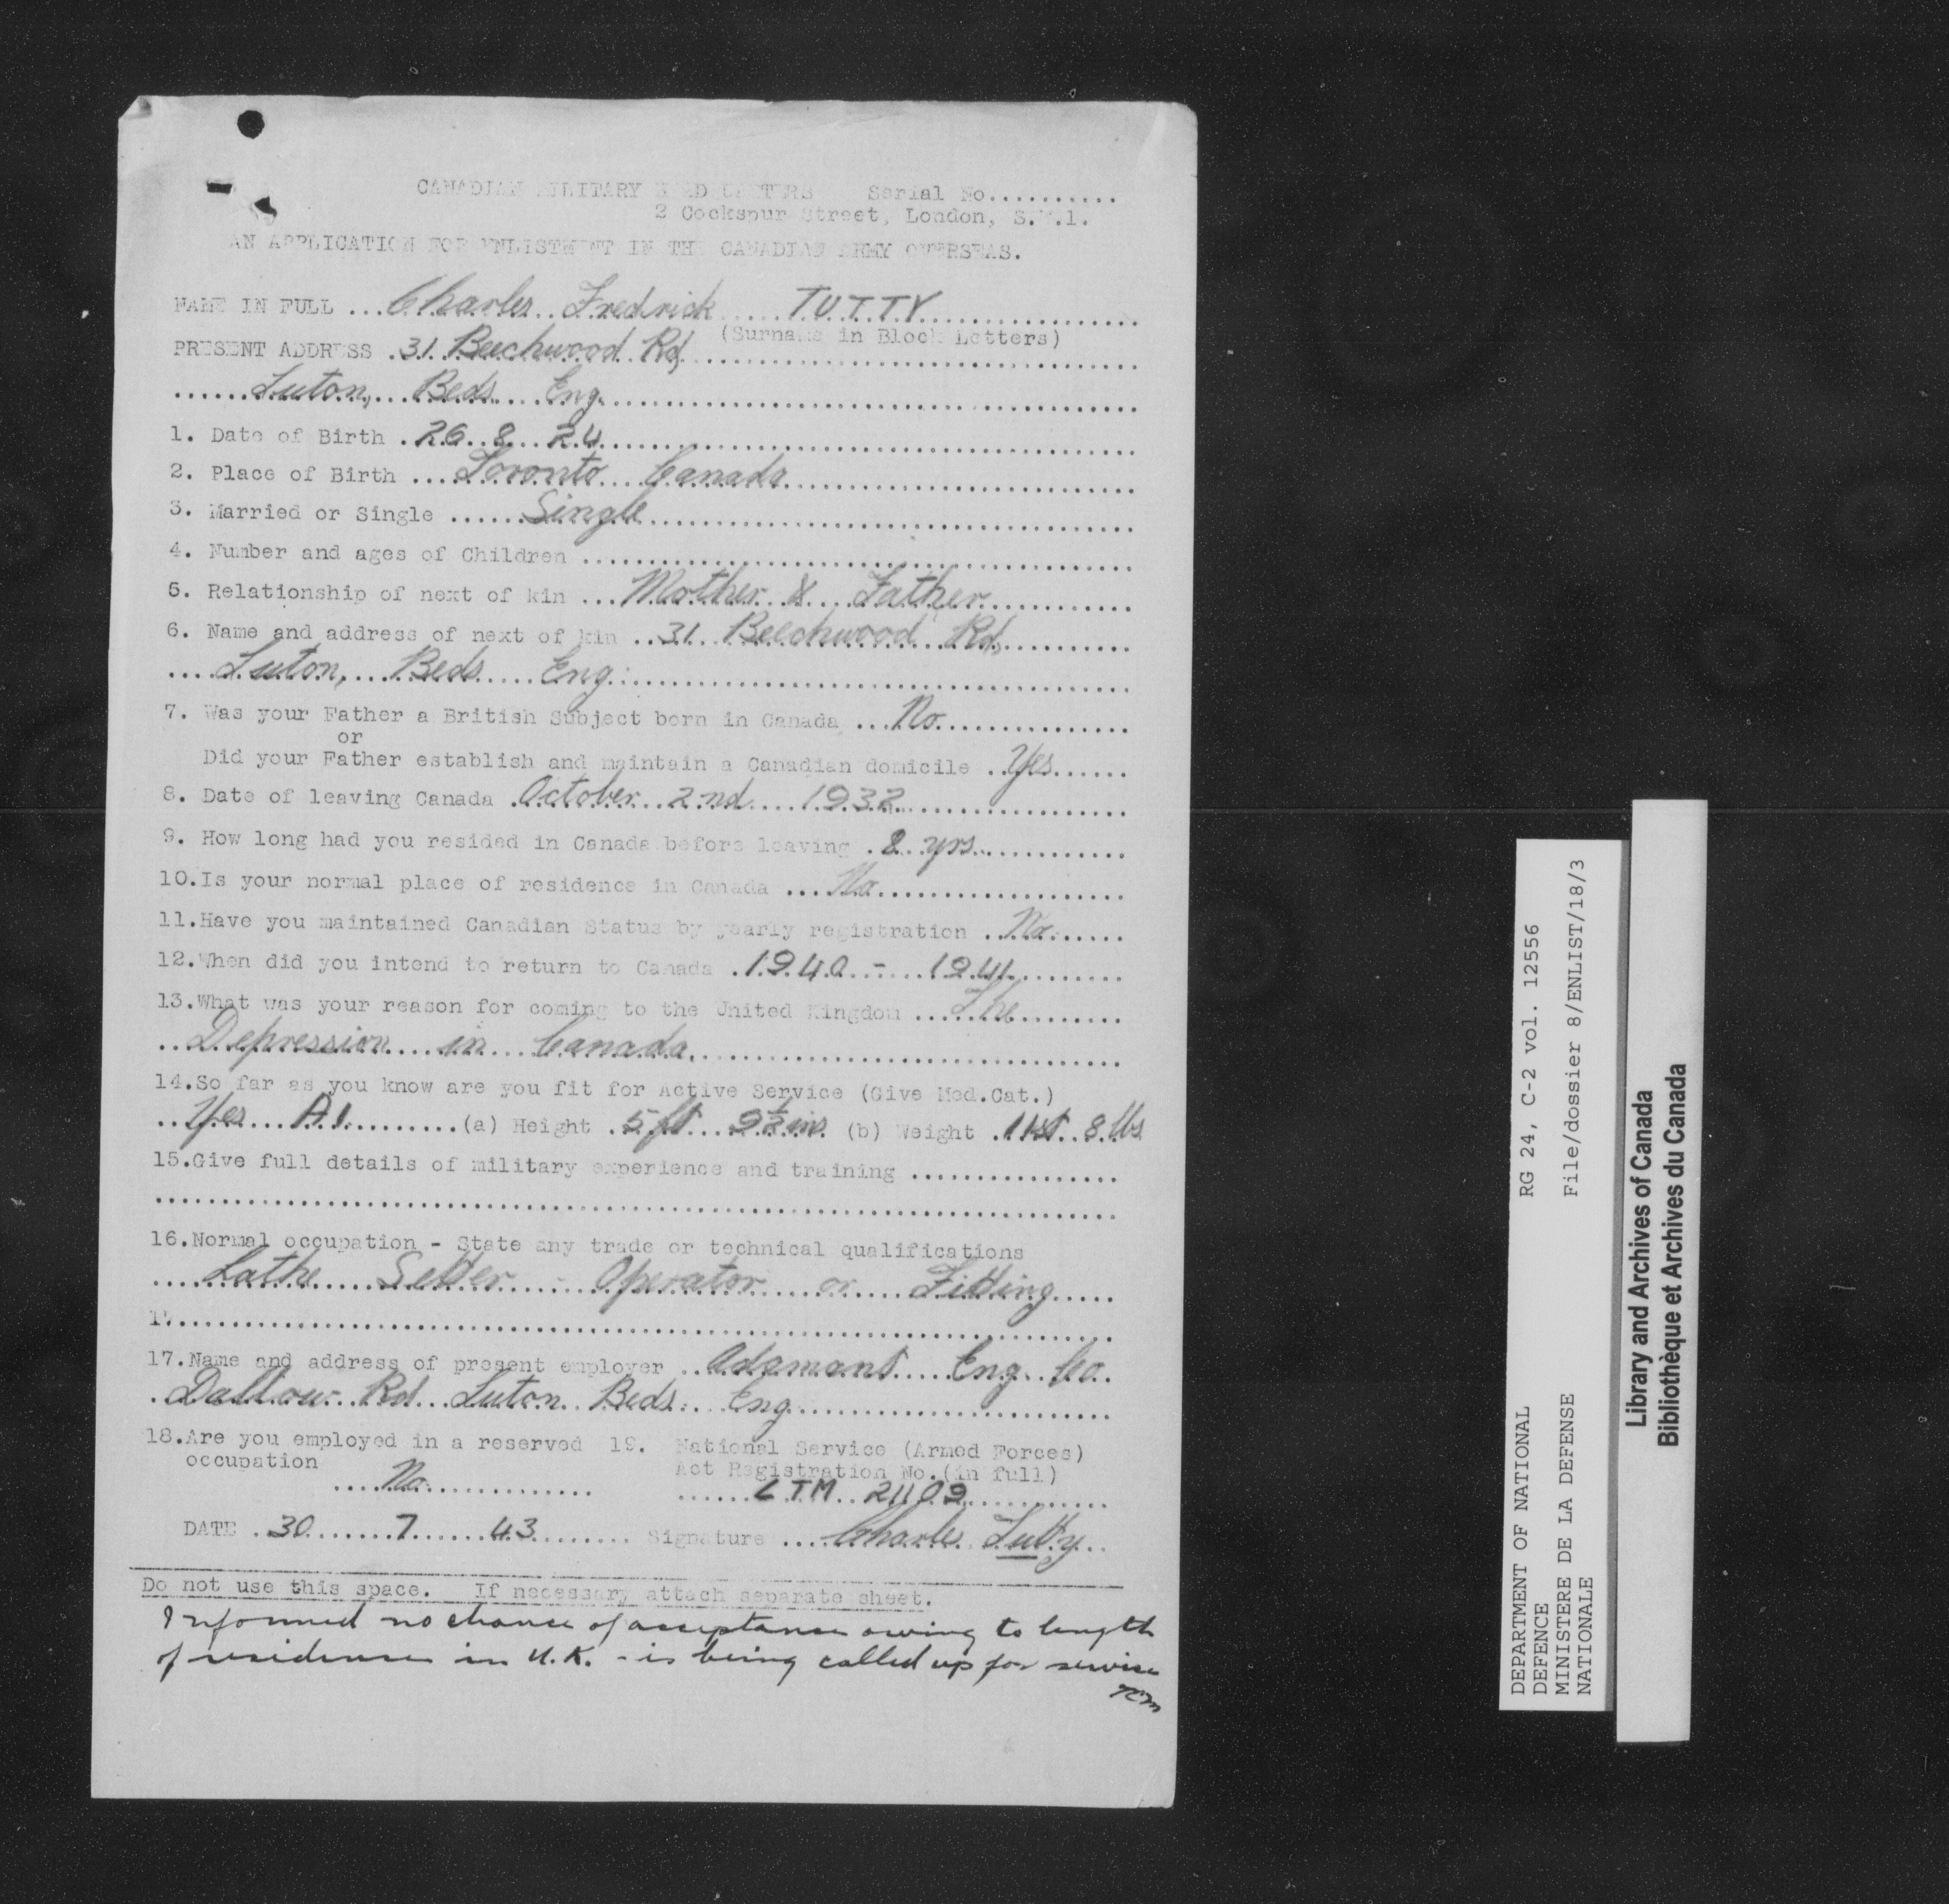 CANADIAN MILITARY HEADQUARTERS Serial No..........
2 Cockspur Street, London, S.W.1.
AN APPLICATION FOR ENLISTMENT IN THE CANADIAN ARMY OVERSEAS.
NAME IN FULL ... Charles Fredrick TUTTY
(Surname in Block Letters)
PRESENT ADDRESS . 31 Beechwood Rd,
Luton, Beds Eng.
1. Date of Birth . 26 8 24
2. Place of Birth ... Toronto Canada
3. Married or Single ...... Single
4. Number and ages of Children ..........
5. Relationship of next of kin ... Mother & Father
6. Name and address of next of kin .. 31 Beechwood Rd,
Luton, Beds Eng.
7. Was your Father a British Subject born in Canada ... No
or
Did your Father establish and maintain a Canadian domicile . Yes
8. Date of leaving Canada . October 2nd 1932
9. How long had you resided in Canada before leaving . 8 yrs.
10.Is your normal place of residence in Canada ... No
11.Have you maintained Canadian Status by yearly registration . No
12.When did you intend to return to Canada . 1940 - 1941
13.What was your reason for coming to the United Kingdom ... The
Depression in Canada
14.So far as you know are you fit for Active Service (Give Med.Cat.)
Yes A1 (a) Height . 5 ft 9½ ins (b) Weight . 11st 8 lbs
15.Give full details of military experience and training ..........
16.Normal occupation - State any trade or technical qualifications
Lathe Setter - Operator or Fitting
17.Name and address of present employer .. Adamant Eng. Co.
Dallow Rd Luton Beds. Eng
18.Are you employed in a reserved 19. National Service (Armed Forces)
occupation Act Registration No.(in full)
No LTM 2109
DATE . 30 7 43 Signature .... Charles Tutty
Do not use this space. If necessary attach separate sheet.
Informed no chance of acceptance owing to length
of residence in U.K. - is being called up for service
DEPARTMENT OF NATIONAL RG 24, C-2 vol. 12556
DEFENCE
MINISTERE DE LA DEFENSE File/dossier 8/ENLIST/18/3
NATIONALE
Library and Archives of Canada
Bibliothèque et Archives du Canada